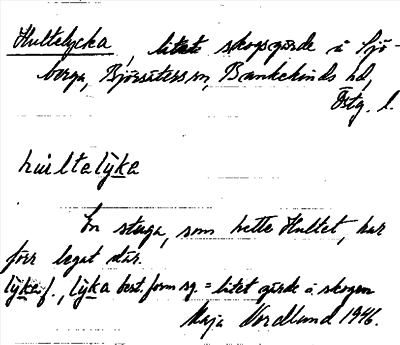 Hultelycka, litet skogsgärde å Sjö-
berga, Björsäters sn, Bankekinds hd,
Östg. l.
hultelỳka
En stuga, som hette Hultet, har
förr legat där.
lỳka f., lỳka best. form sg = litet gärde i skogen
Maja Nordlund 1946.